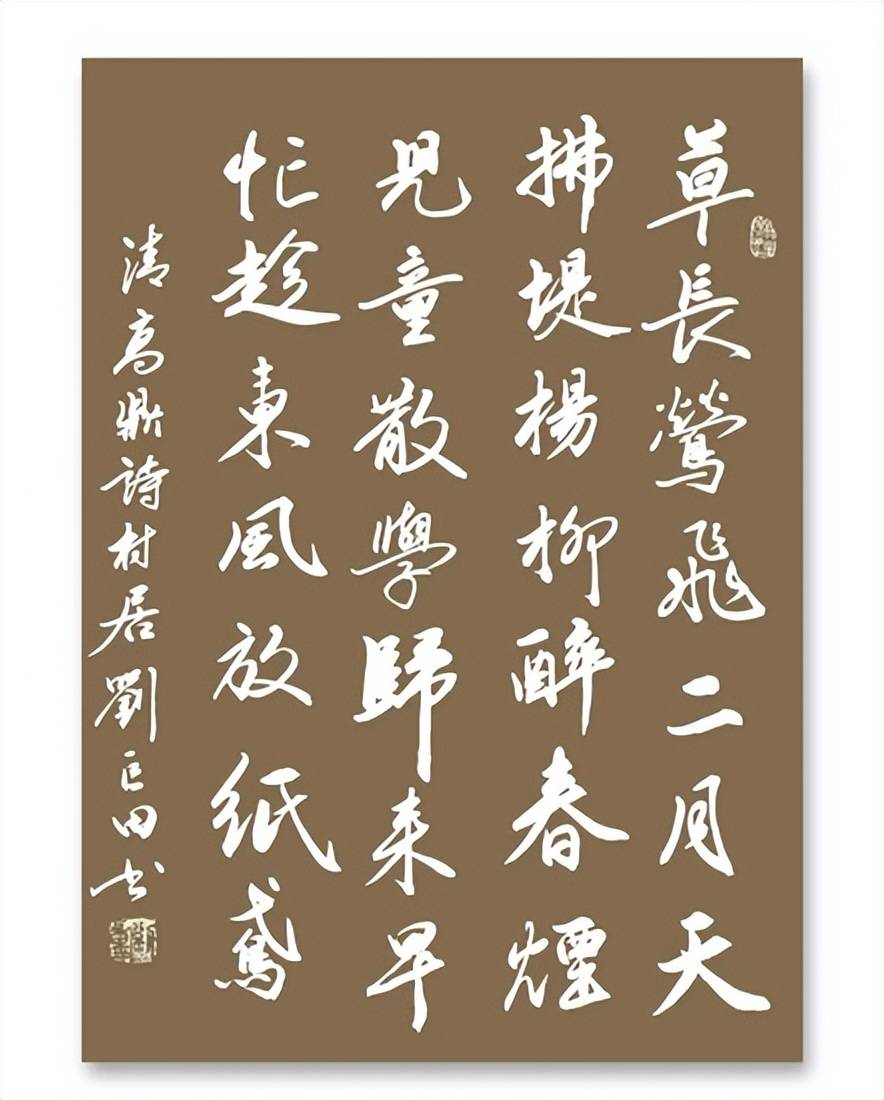 草長鶯飛二月天
拂堤楊柳醉春煙
兒童散學歸来早
忙趁東風放纸鳶
清高鼎詩村居劉田书